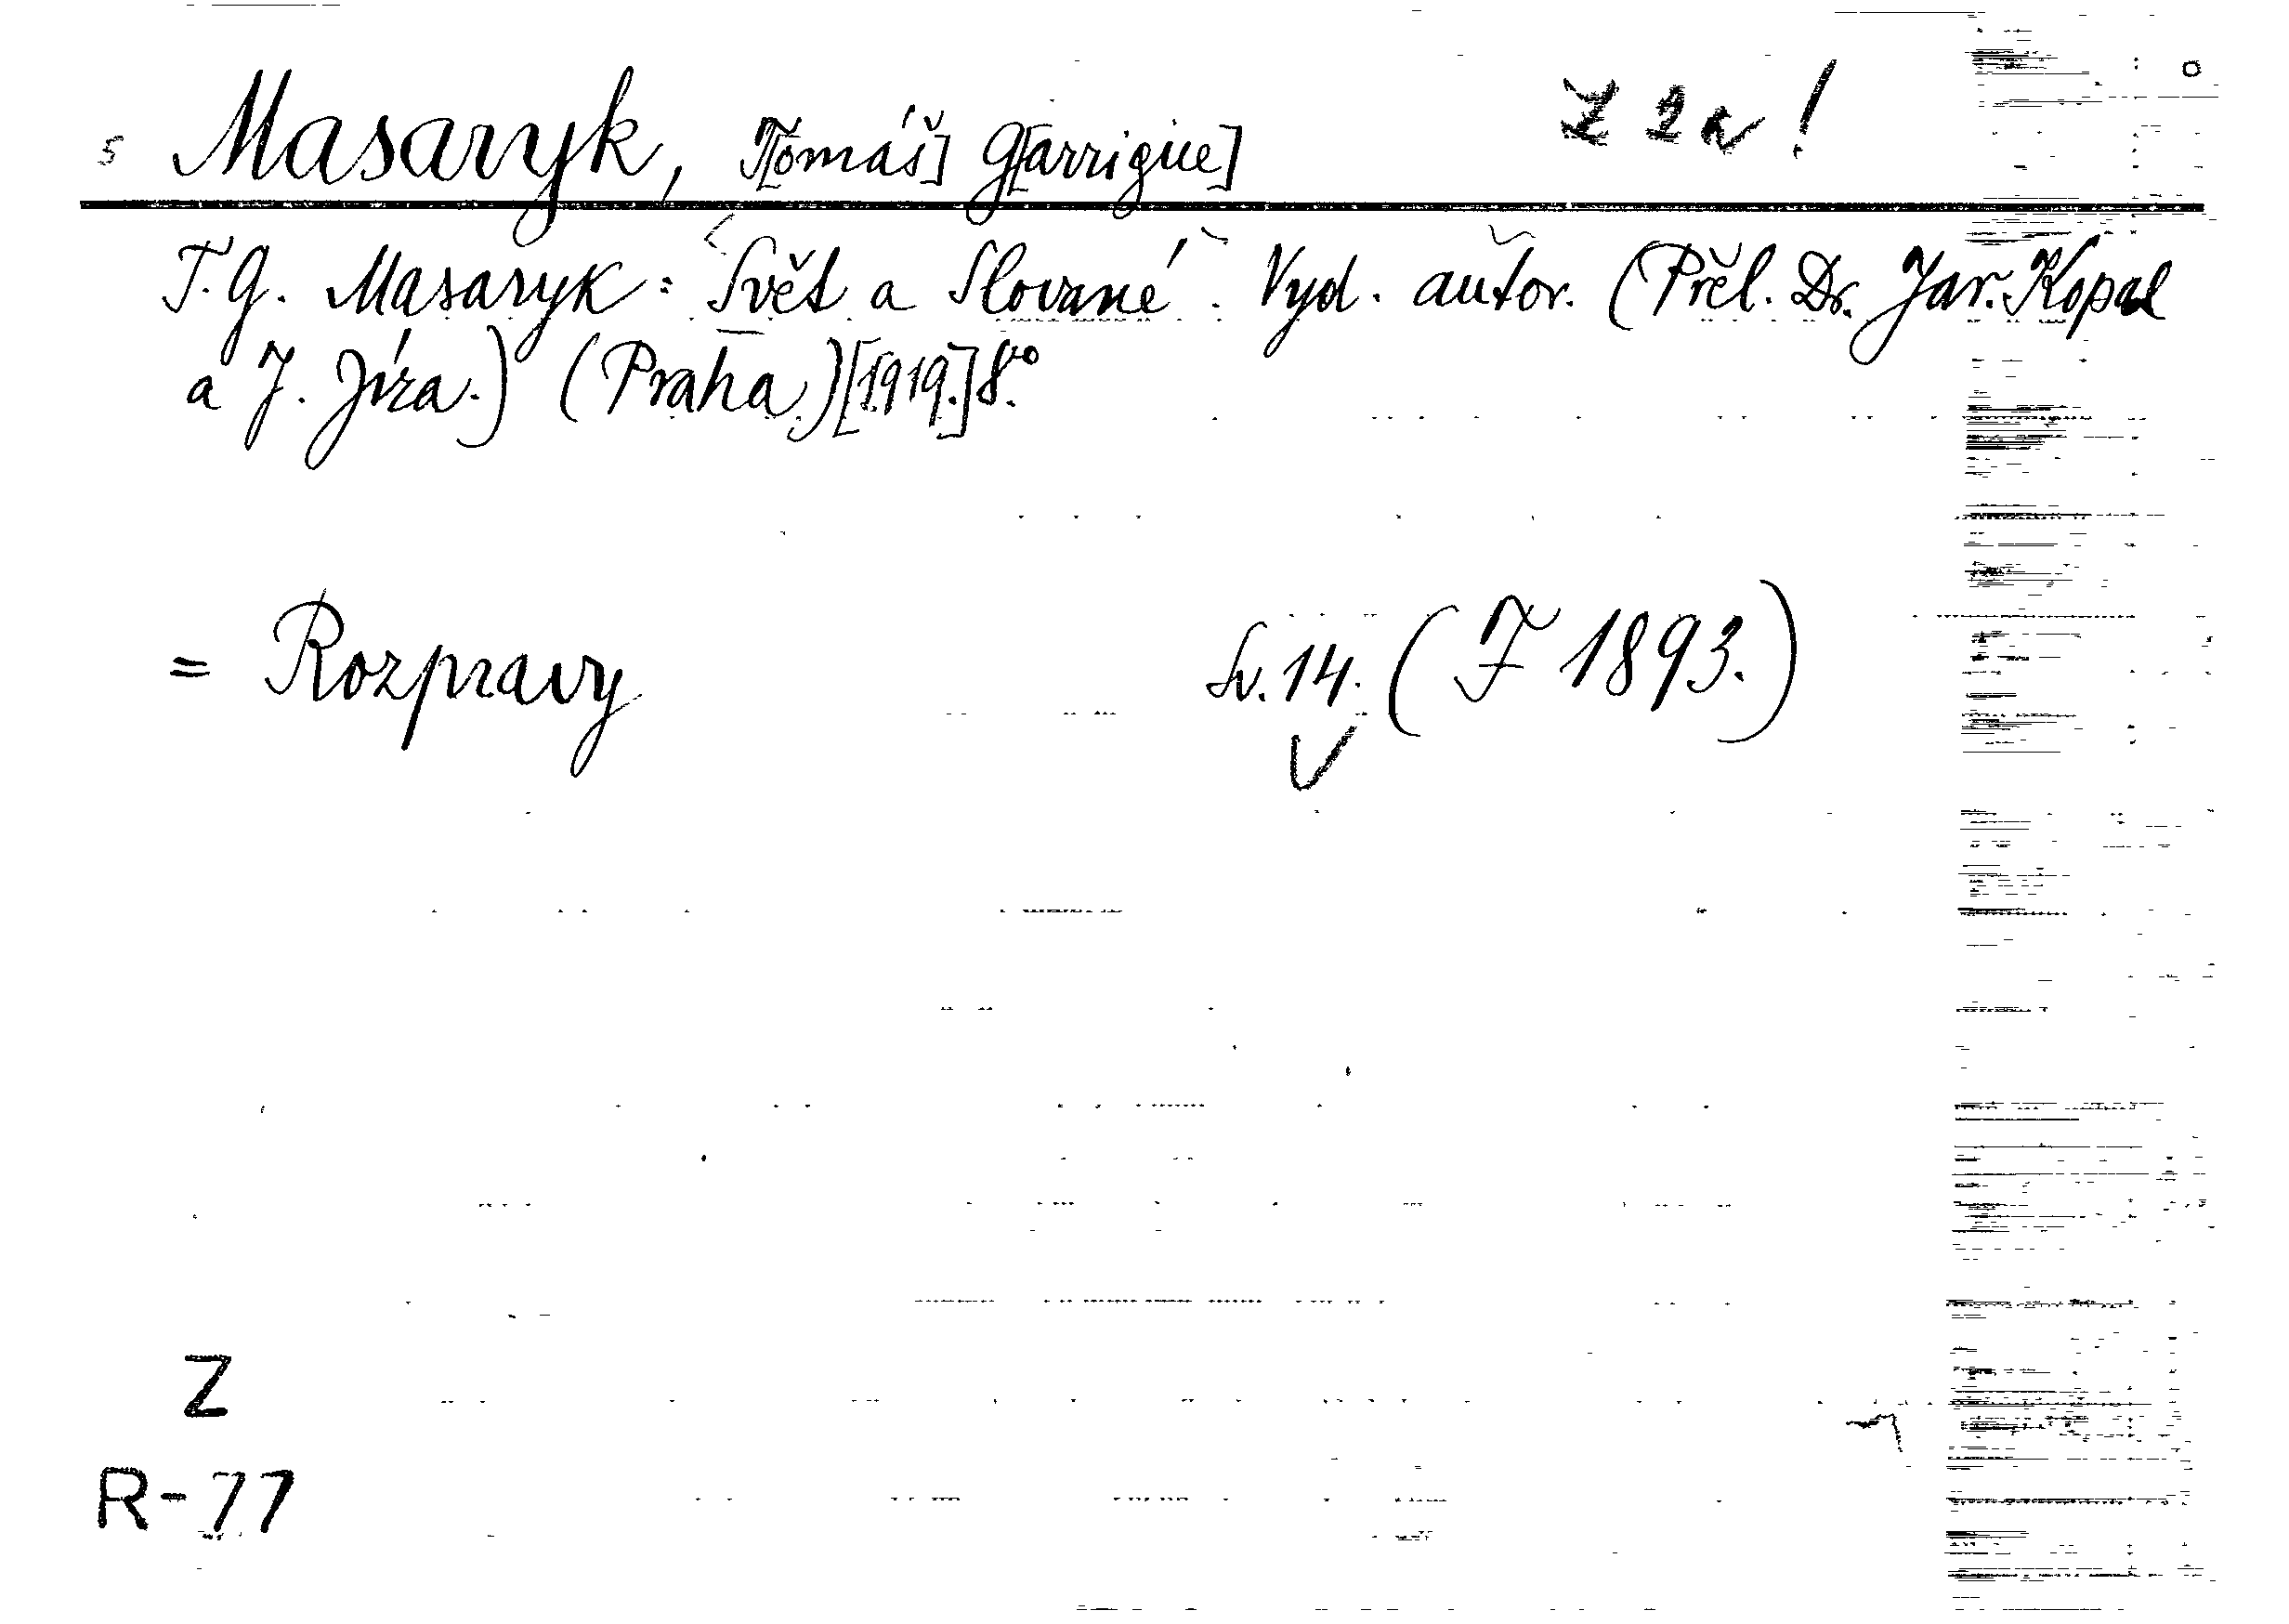 s Masaryk, T[omáš] G[arrigue] Z 2a!
T. G. Masaryk: Svět a Slované. Vyd. autor. (Přel. Dr. Jar. Kopal
a J. Jíra.) (Praha.) [1919.] 8°.
= Rozpravy Sv. 14. (F 1893.)
Z
R-77